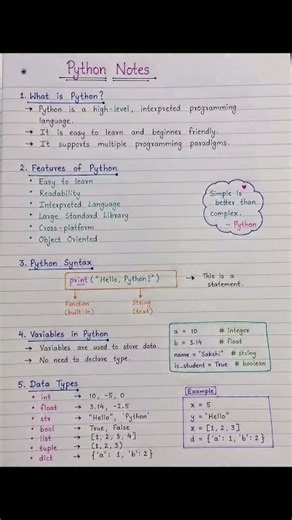 * Python Notes
1. What is Python?
→ Python is a high-level, interpreted programming
language.
→ It is easy to learn and beginner friendly.
→ It supports multiple programming paradigms.
2. Features of Python
• Easy to learn
• Readability
• Interpreted Language
• Large Standard Library
• Cross-platform
• Object Oriented
Simple is
better than
complex.
- Python
3. Python Syntax
print("Hello, Python!")
→ This is a
statement.
Function
(built-in)
String
(text)
4. Variables in Python
→ Variables are used to store data.
→ No need to declare type.
a = 10 # integer
b = 3.14 # float
name = "Sakshi" # string
is_student = True # boolean
5. Data Types
• int → 10, -5, 0
• float → 3.14, -2.5
• str → "Hello", 'Python'
• bool → True, False
• list → [1, 2, 3, 4]
• tuple → (1, 2, 3)
• dict → {'a': 1, 'b': 2}
Example
x = 5
y = "Hello"
z = [1, 2, 3]
d = {'a': 1, 'b': 2}